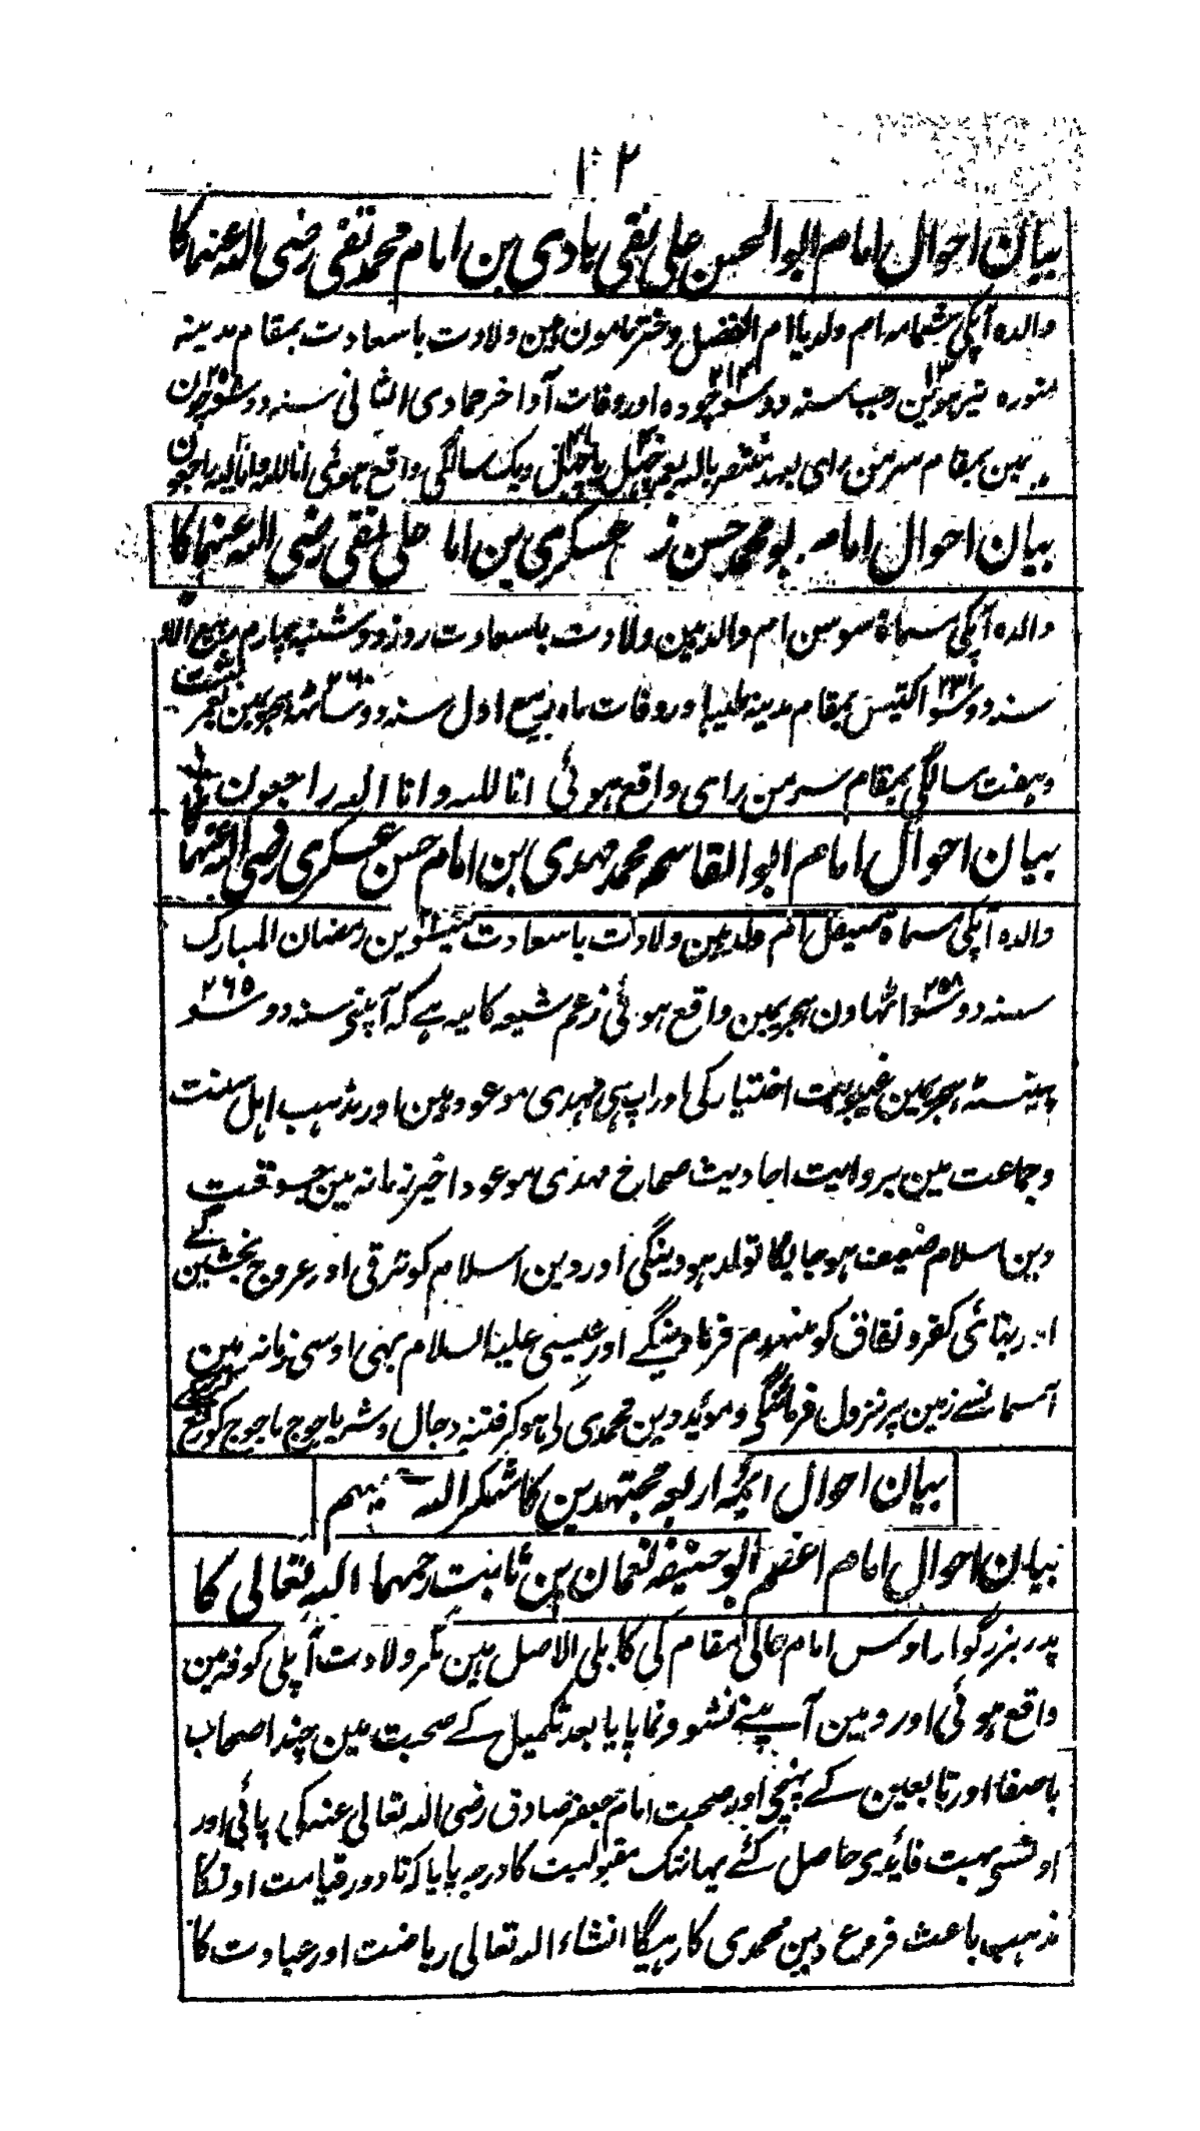 ۱۰۲
بیان احوال امام ابوالحسن علی نقی ہادی بن امام محمد تقی رضی اللہ عنہما کا
والدہ آپکی شمامہ ام ولد یا ام الفضل دختر مامون ہین ولادت باسعادت بمقام مدینہ
منورہ تیرہوئین ۱۳ رجب سنہ دو سو چودہ ۲۱۴ اور وفات آواخر جمادی الثانی سنہ دو سو
ہین بمقام سرمن رای بعہد منتصر باللہ بعمر چہل یا چہل ویک سالگی واقع ہوئی انا للہ وانا الیہ راجعون
بیان احوال امام ابو محمد حسن عسکری بن امام علی نقی رضی اللہ عنہما کا
والدہ آپکی سماۃ سوسن ام ولد ہین ولادت باسعادت روز دو شنبہ چہارم ربیع الآخر
سنہ دو سو اکتیس ۲۳۱ بمقام مدینہ طیبہ اور وفات ماہ ربیع اول سنہ دو سو ساٹہہ ۲۶۰ ہجریمین بعمر بست
وہفت سالگی بمقام سرمن رای واقع ہوئی انا للہ وانا الیہ راجعون
بیان احوال امام ابوالقاسم محمد مہدی بن امام حسن عسکری رضی اللہ عنہما کا
والدہ آپکی سماۃ صیقل ام ولد ہین ولادت باسعادت تیئیسوین ۲۳ رمضان المبارک
سنہ دو سو اٹہاون ۲۵۸ ہجریمین واقع ہوئی زعم شیعہ کا یہ ہے کہ آپنے سنہ دو سو ۲۶۵
پینسٹہ ہجریمین غیبوبت اختیار کی اور آپ ہی مہدی موعود ہین اور مذہب اہل سنت
وجماعت مین بروایت احادیث صحاح مہدی موعود اخیر زمانہ مین جسوقت
دین اسلام ضعیف ہو جایگا تولد ہووینگی اور دین اسلام کو ترقی اور عروج بخشین گے
اور بنائی کفر و نفاق کو منہدم فرماوینگے اور عیسی علیہ السلام بہی اوسی زمانہ مین
آسمانسے زمین پر نزول فرمائنگی و موئد دین محمدی کی ہوکر فتنہ دجال و شر یاجوج ماجوج کو رفع کرینگے
بیان احوال ایمہ اربعہ مجتہدین کا شکر اللہ سعیہم
بیان احوال امام اعظم ابو حنیفہ نعمان بن ثابت رحمہما اللہ تعالی کا
پدر بزرگوار اوس امام عالی مقام کی کابلی الاصل ہین مگر ولادت آپکی کوفہ مین
واقع ہوئی اور وہین آپنے نشوونما پایا بعد تکمیل کے صحبت مین چند اصحاب
باصفا اور تابعین کے پہنچی اور صحبت امام جعفر صادق رضی اللہ تعالی عنہ کی پائی اور
اونسی بہت فایدی حاصل کئے یہانتک مقبولیت کا درجہ پایا کہ تا دور قیامت اونکا
مذہب باعث فروع دین محمدی کا رہیگا انشاء اللہ تعالی ریاضت اور عبادت کا